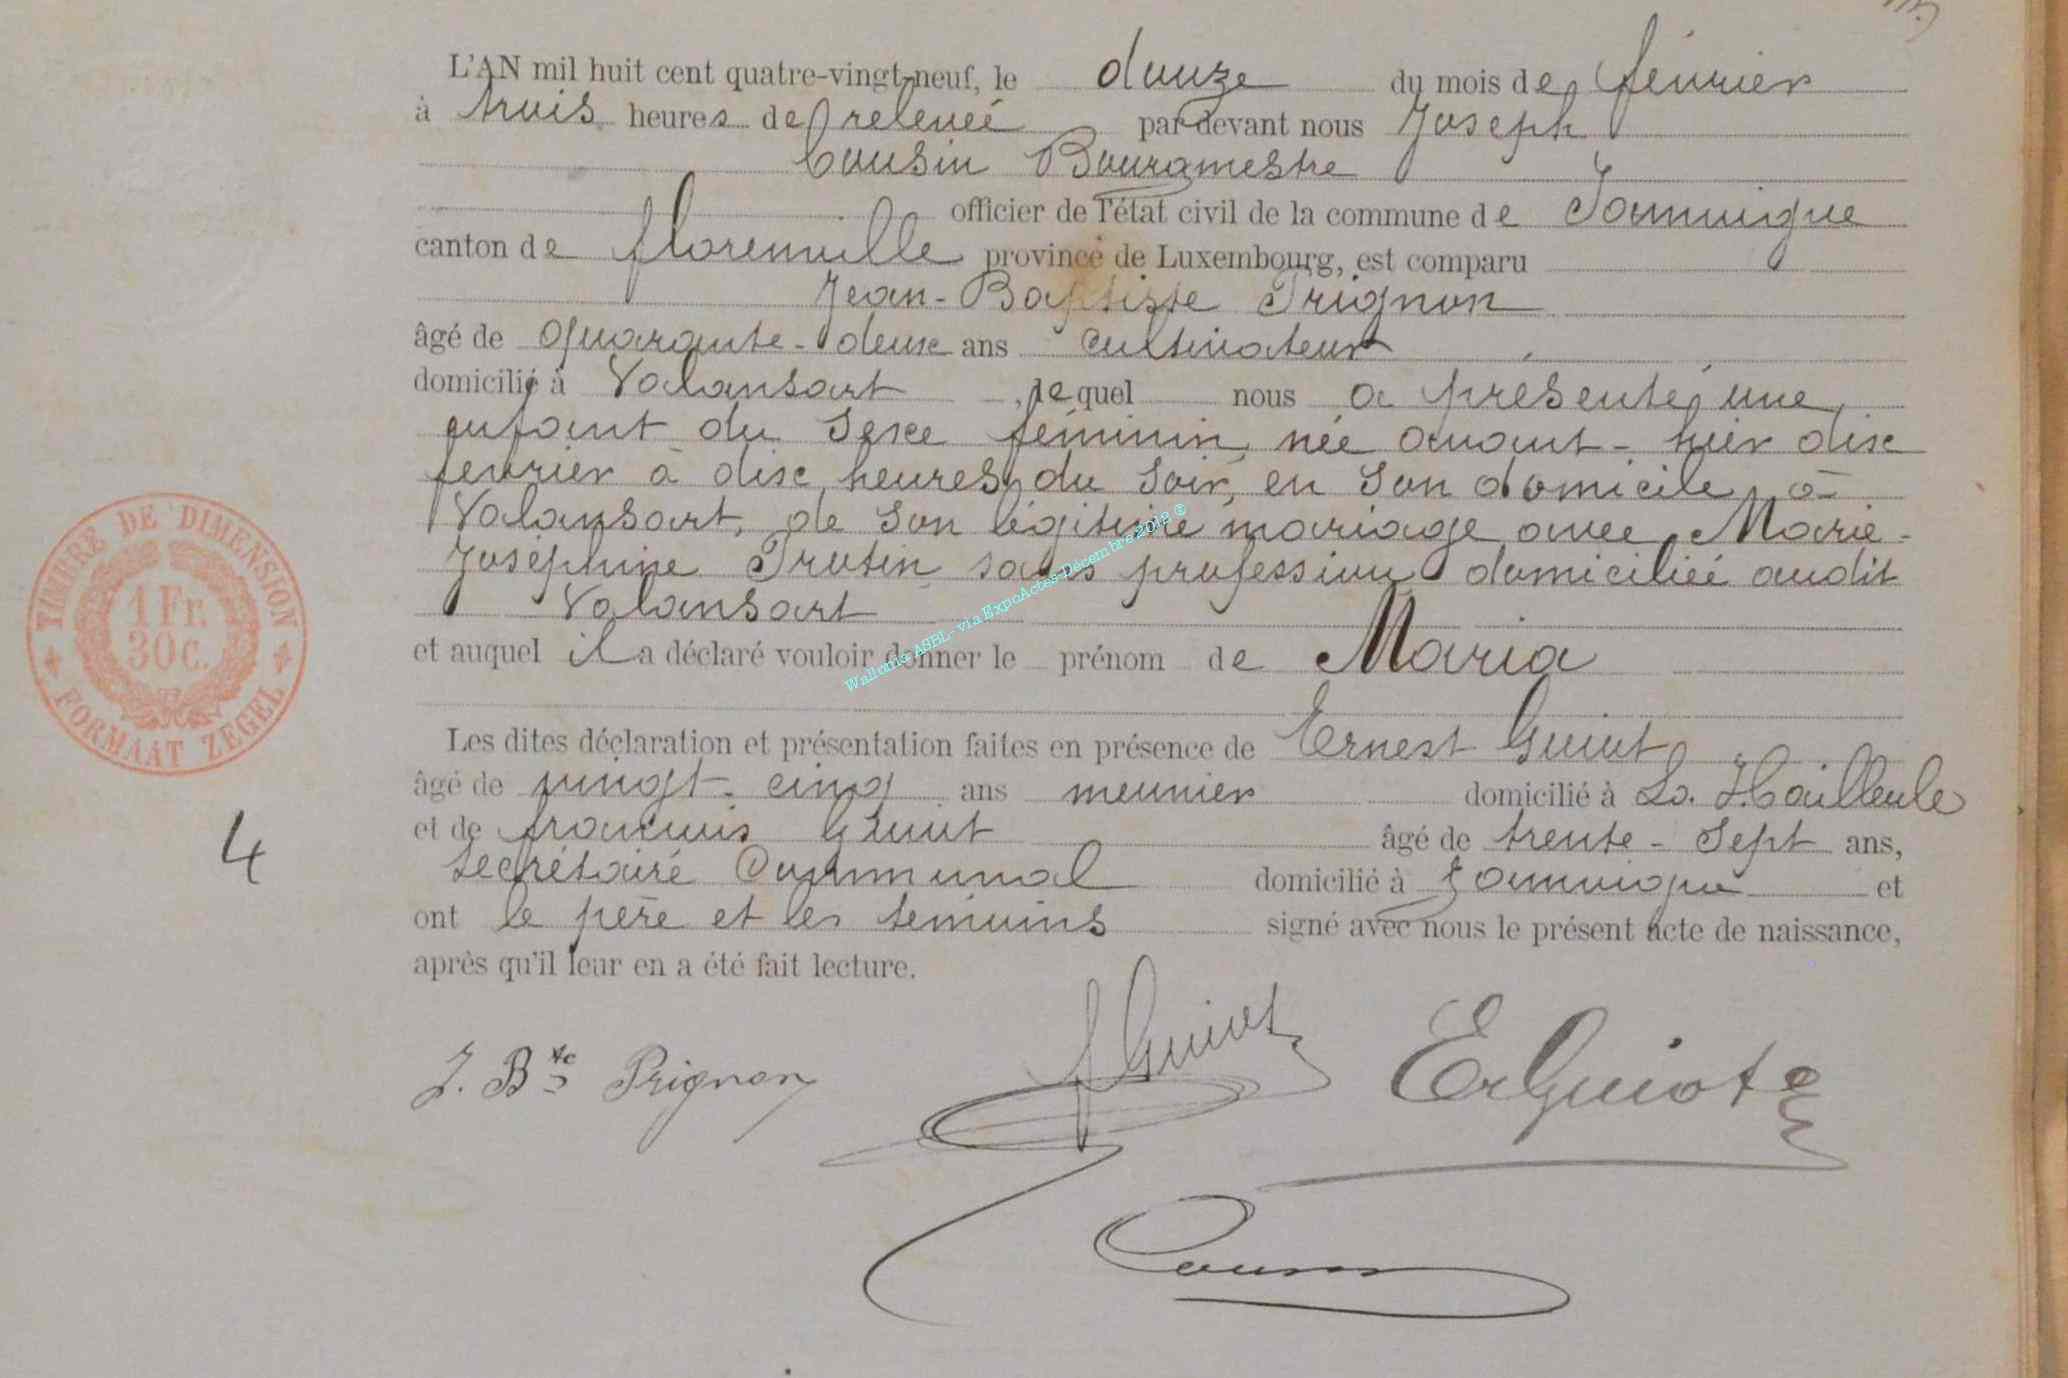 L'AN mil huit cent quatre-vingt-neuf, le douze du mois de février
à trois heures de relevée par devant nous Joseph
Cousin Bourgmestre
officier de l'état civil de la commune de Jamoigne
canton de florenville province de Luxembourg, est comparu
Jean-Baptiste Prignon
âgé de quarante-deux ans cultivateur
domicilié à Valansart, lequel nous a présenté une
enfant du sexe féminin, née avant-hier dix
fevrier à dix heures du soir, en son domicile à
Valansart, de son légitime mariage avec Marie-
Joséphine Protin sans profession domiciliée audit
Valansart
et auquel il a déclaré vouloir donner le prénom de Maria
Les dites déclaration et présentation faites en présence de Ernest Guiot
âgé de vingt-cinq ans meunier domicilié à La Hailleule
et de françois Guiot âgé de trente-sept ans,
secrétaire Communal domicilié à Jamoigne et
ont le père et les témoins signé avec nous le présent acte de naissance,
après qu'il leur en a été fait lecture.
J. Bte Prignon
f Guiot
Er Guiot
Cousin
TIMBRE DE DIMENSION
1 Fr.
30 c.
FORMAAT ZEGEL
4
Wallonia ASBL - via ExpoActes Décembre 2012 ©